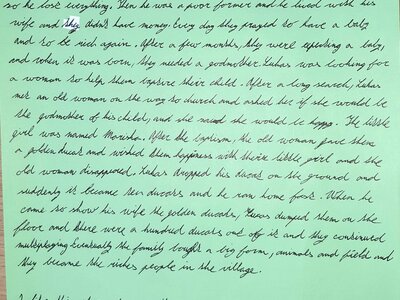 so he lost everything. Then he was a poor former and he lived with his
wife and they didn't have money. Every day they prayed to have a baby
and to be rich again. After a few months, they were epecting a baby,
and when it was born, they needed a godmother. Lukas was looking for
a woman to help them baptise their child. After a long search, Lukas
met an old woman on the way to church and asked her if she would be
the godmother of his child, and she said she would be happy. The little
girl was named Maruška. After the baptism, the old woman gave them
a golden ducat and wished them happiness with their little girl and the
old woman disappeared. Lukas dropped his ducat on the ground and
suddenly it became ten ducats and he ran home fast. When he
came to show his wife the golden ducats, Lukas dumped them on the
floor and there were a hundred ducats out of it and they continued
multiplying. Eventually the family bought a big form, animals and field and
they became the riches people in the village.